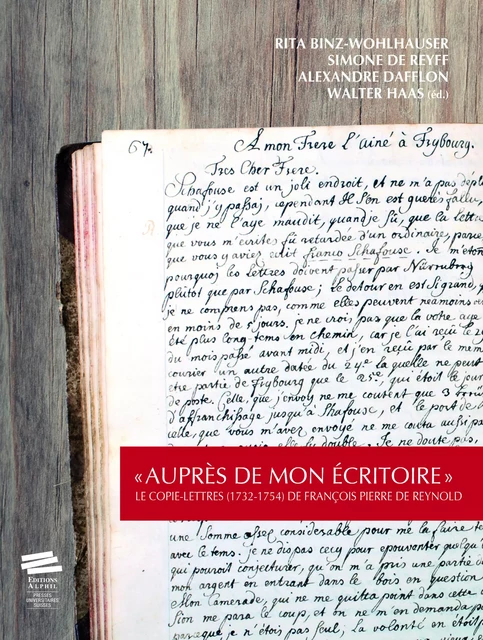 RITA BINZ-WOHLHAUSER
SIMONE DE REYFF
ALEXANDRE DAFFLON
WALTER HAAS (éd.)
67.
A mon Frere l'ainé à Frybourg.
Tres Cher Frere.
Schafouse est un joli endroit, et ne m'a pas
quand j'y passaj, cependant il s'en est gueres fallu,
que je ne l'aye maudit, quand je sû, que la lettre
que vous m'ecrites fû retardée d'un ordinaire, parce
que vous y aviez ecrit franco Schafouse. Je
pourquoj les lettres doivent passer par Nürmberg
plûtot que par Schafouse; le detour en est si grand,
je ne comprens pas, comme elles peuvent neamoins
en moins de 5 jours. je ne crois pas que la votre aye
été plus long-tems en chemin, car je l'ai reçû le
du mois passé avant midi, et j'en reçû par le meme
courier un autre datée du 24ᵉ la quelle ne peut
etre partie de Frybourg que le 25ᵉ, qui étoit le jour
de poste. Celle, que j'envoy ne me coutent que 3
d'affranchissage jusqu'à Shafouse, et le port de
celle, que vous m'avez envoyé ne me couta aussi
le double. Je ne doute pas,
« AUPRÈS DE MON ÉCRITOIRE »
LE COPIE-LETTRES (1732-1754) DE FRANÇOIS PIERRE DE REYNOLD
une Somme assez considerable pour me la faire
avec le tems. je ne dis pas cecy pour epouvanter
qui pouroit conjecturer, qu'on m'a pris une partie
mon argent en entrant dans le bois en question
Mon Camerade, qui ne me quitta point dans cette
Sion me para le coup, et on ne m'en demanda
parceque je n'étois pas seul; la volonté en étoit
EDITIONS
ALPHIL
PRESSES
UNIVERSITAIRES
SUISSES